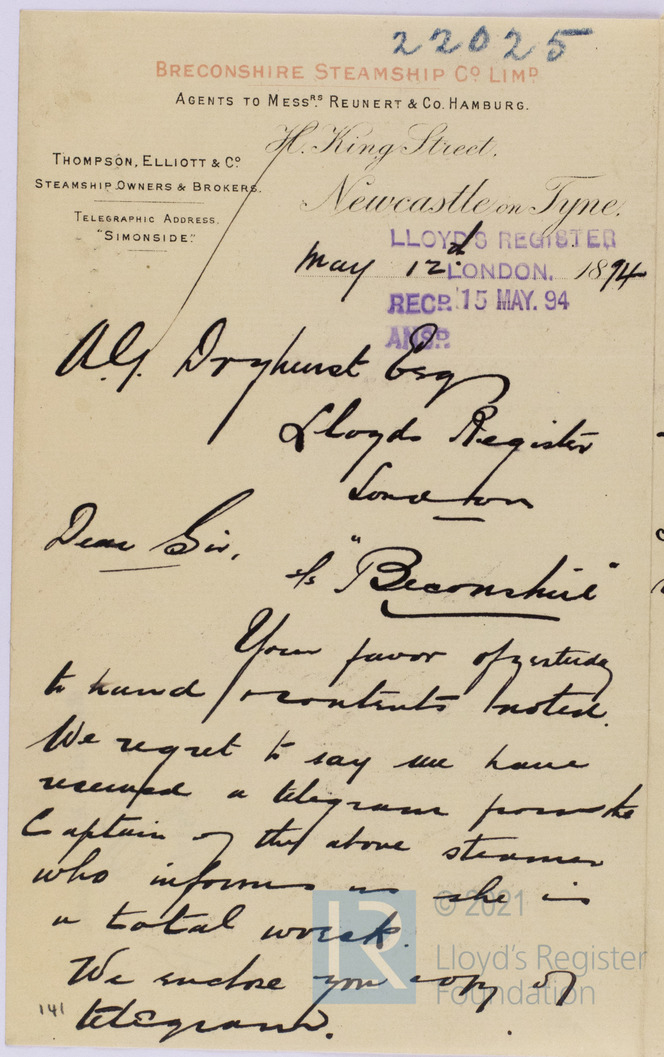 22025
BRECONSHIRE STEAMSHIP Co LIMD
AGENTS TO MESSRS REUNERT & CO. HAMBURG.
H. King Street,
THOMPSON, ELLIOTT & Co
STEAMSHIP OWNERS & BROKERS.
Newcastle on Tyne.
TELEGRAPHIC ADDRESS.
"SIMONSIDE."
LLOYD'S REGISTER
May 12d 1894
LONDON.
RECD. 15 MAY. 94
ANSD.
A.G. Dryhurst Esq
Lloyds Register
London
Dear Sir,
s/s "Beconshire"
Your favor of yesterday
to hand & contents noted.
We regret to say we have
received a telegram from the
Captain of the above steamer
who informs us she is
a total wreck.
We enclose you copy of
telegram.
141
© 2021
Lloyd's Register
Foundation
LR